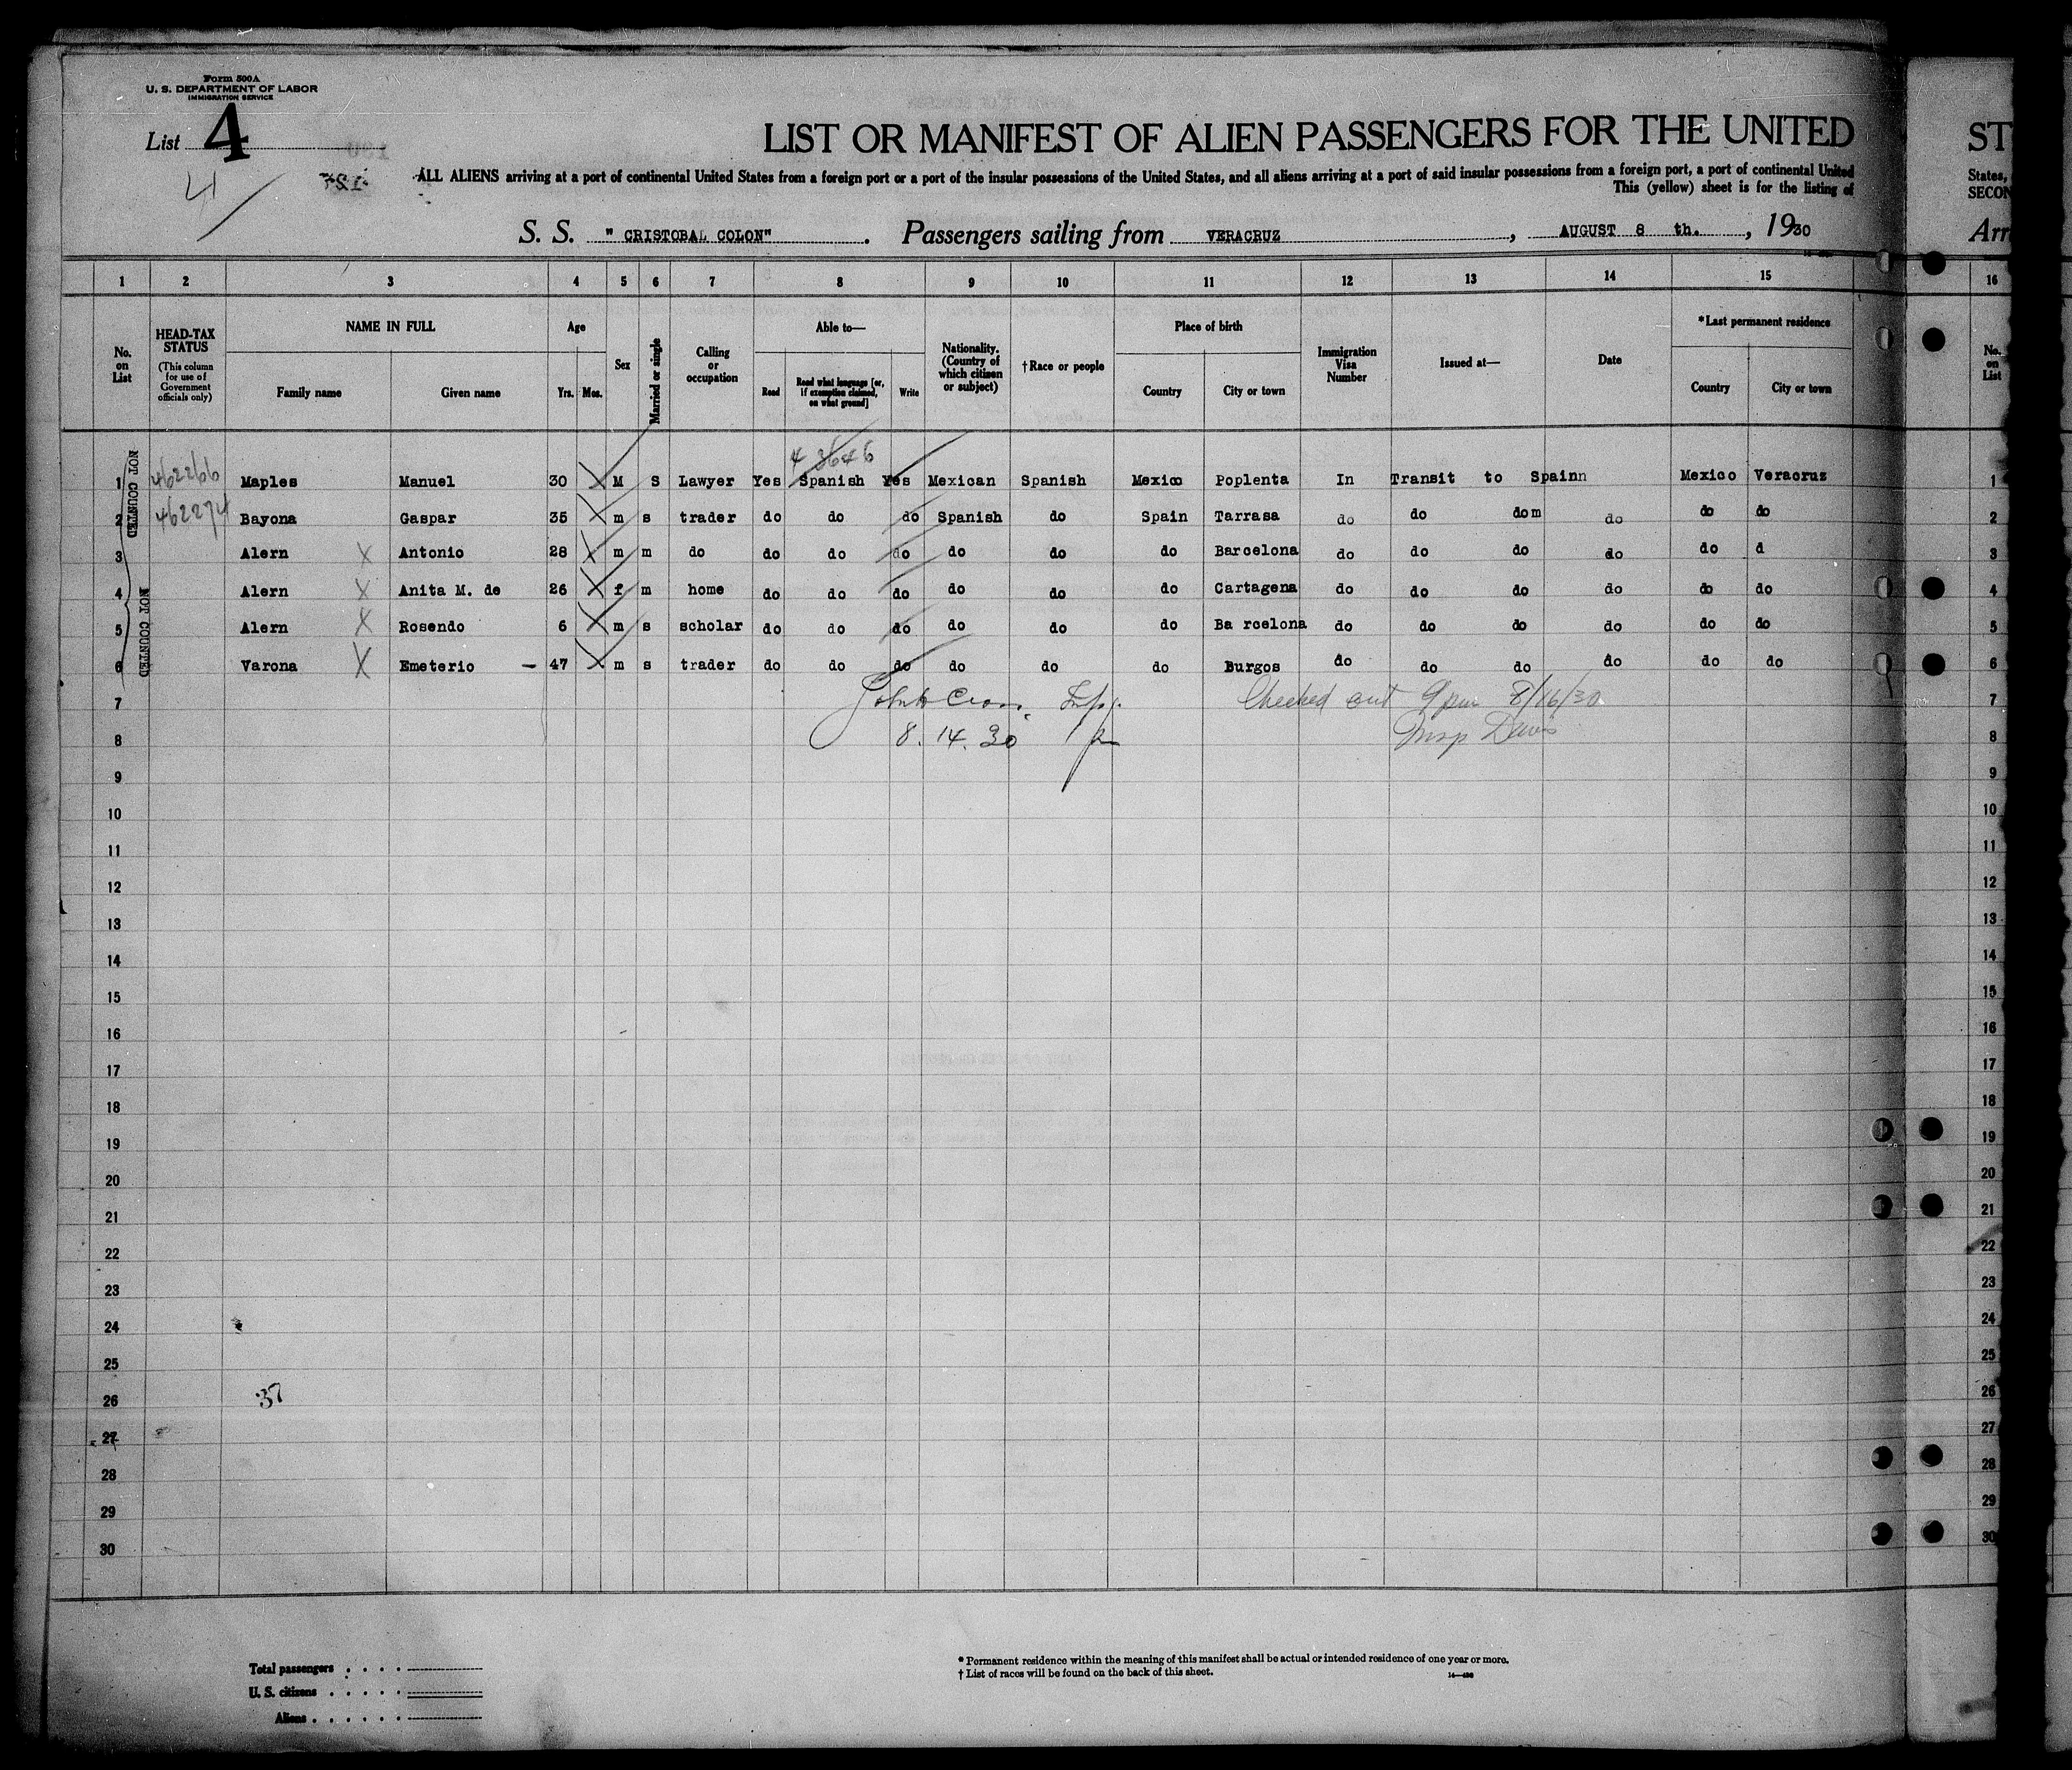 Form 500A
U. S. DEPARTMENT OF LABOR
IMMIGRATION SERVICE
List 4
4
LIST OR MANIFEST OF ALIEN PASSENGERS FOR THE UNITED
ST
ALL ALIENS arriving at a port of continental United States from a foreign port or a part of the insular possessions of the United States, and all aliens arriving at a port of said insular possessions from a foreign port, a port of continental United
States,
This (yellow) sheet is for the listing of
SECON
S. S. " CRISTOBAL COLON" . Passengers sailing from VERACRUZ , AUGUST 8 th. , 1930
Arri
1 2 3 4 5 6 7 8 9 10 11 12 13 14 15 16
No. on List
HEAD-TAX STATUS (This column for use of Government officials only)
NAME IN FULL Family name Given name
Age Yrs. Mos.
Sex
Married or single
Calling or occupation
Able to— Read Read what language [or, if exemption claimed, on what ground] Write
Nationality. (Country of which citizen or subject)
†Race or people
Place of birth Country City or town
Immigration Visa Number
Issued at—
Date
*Last permanent residence Country City or town
No. on List
NOT COUNTED
NOT COUNTED
4 3646
1 462266 Maples Manuel 30 M S Lawyer Yes Spanish Yes Mexican Spanish Mexico Poplenta In Transit to Spainn Mexico Veracruz 1
2 462274 Bayona Gaspar 35 m s trader do do do Spanish do Spain Tarrasa do do dom do do do 2
3 Alern X Antonio 28 m m do do do do do do do Barcelona do do do do do d 3
4 Alern X Anita M. de 26 f m home do do do do do do Cartagena do do do do do do 4
5 Alern X Rosendo 6 m s scholar do do do do do do Ba rcelona do do do do do do 5
6 Varona X Emeterio — 47 m s trader do do do do do do Burgos do do do do do do 6
7 Checked out 9 pm 8/16/30 7
8 8. 14. 30 Insp Davis 8
9 9
10 10
11 11
12 12
13 13
14 14
15 15
16 16
17 17
18 18
19 19
20 20
21 21
22 22
23 23
24 24
25 25
26 37 26
27 27
28 28
29 29
30 30
Total passengers . . . .
U. S. citizens . . . . .
Aliens . . . . . .
* Permanent residence within the meaning of this manifest shall be actual or intended residence of one year or more.
† List of races will be found on the back of this sheet.